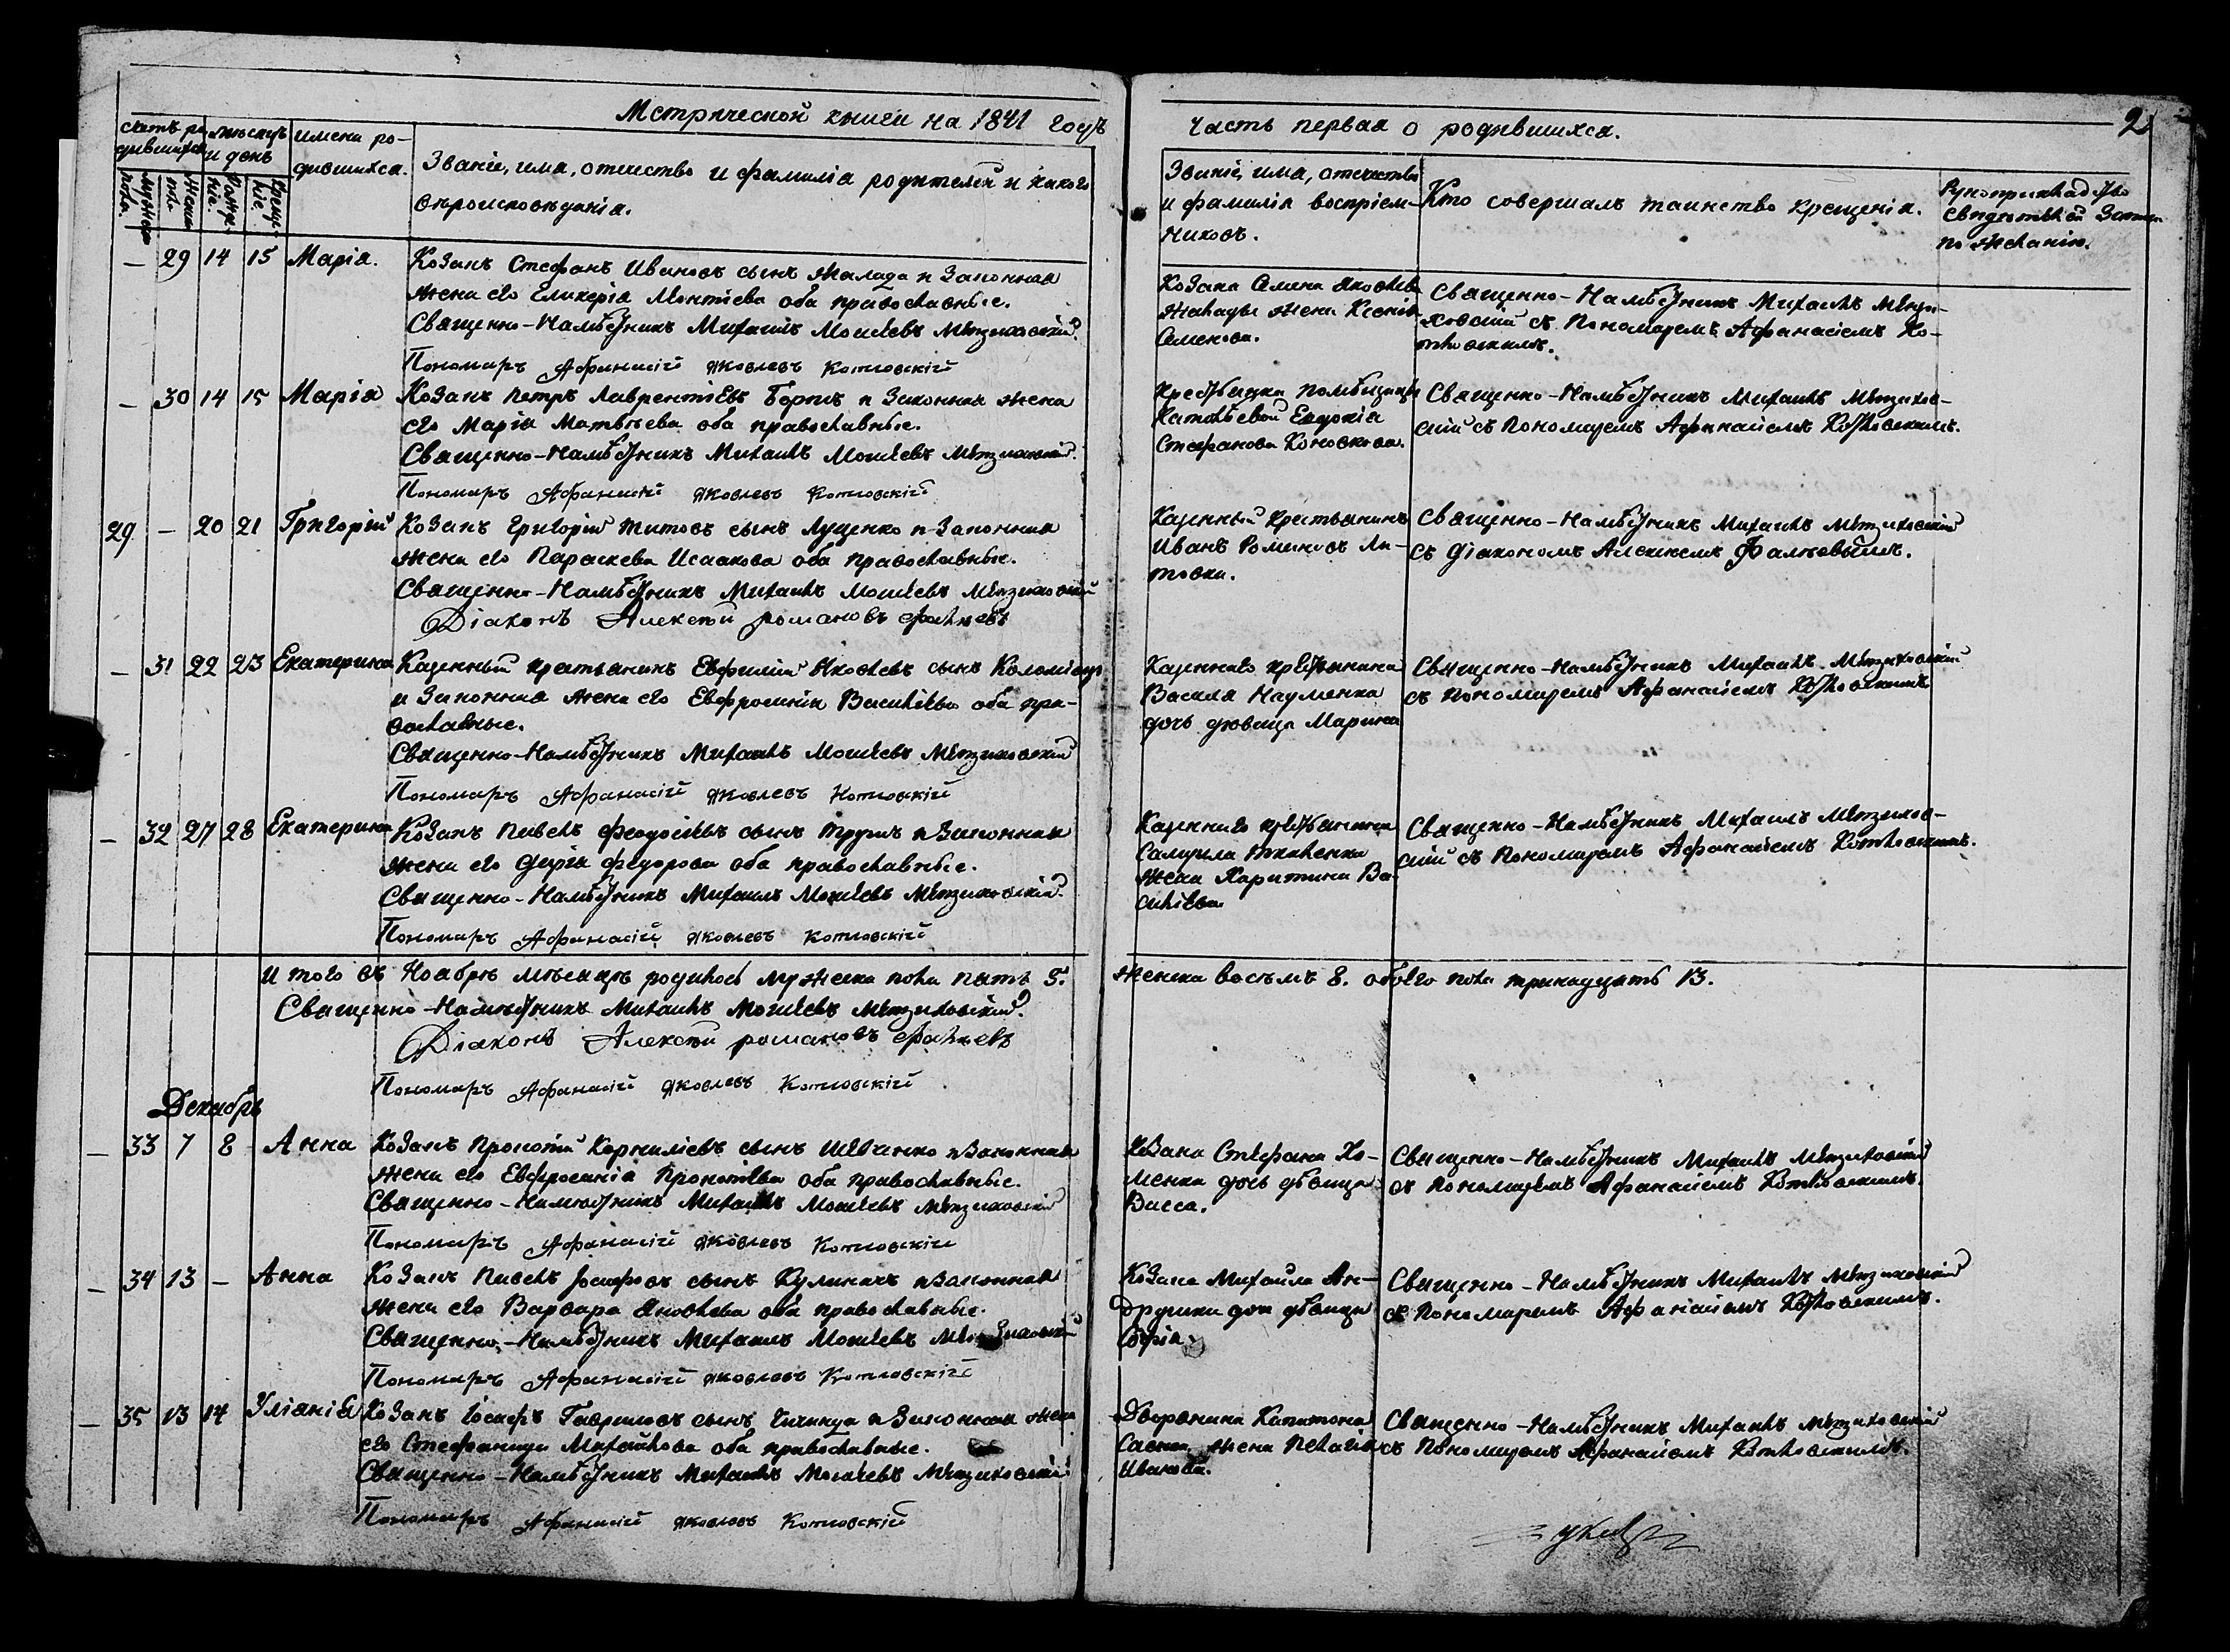 Метрической книги на 1841 годъ
Часть первая о родившихся.
2
счетъ родившихся
мѣсяцъ и день
имена ро-
дившихся.
Званіе, има, отечество и фамиліа родителей и какого
вѣроисповѣданіа.
Званіе, има, отечество
и фамиліа воспріем-
никовъ.
Кто совершалъ таинство крещеніа.
Рукоприкладство
свидѣтелей записи
по желанію.
мужеска пола.
женска пола
рожде-
ніе.
креще-
ніе.
— 29 14 15 Маріа.
Козакъ Стефанъ Ивановъ сынъ Жалада и Законнаа
жена его Гликеріа Леонтіева оба православные.
Священно-Намѣстникъ Михаилъ Моисеевъ
Пономаръ Афанасій Яковлевъ Котловскій
Козака Семена Яковлева
жена Ксеніа
Семенова.
Священно-Намѣстникъ Михаилъ
съ Пономаремъ Афанасіемъ Ко-
тловскимъ.
— 30 14 15 Маріа
Козакъ Петръ Лаврентіевъ и Законнаа жена
его Маріа Матвѣева оба православные.
Священно-Намѣстникъ Михаилъ Моисеевъ
Пономаръ Афанасій Яковлевъ Котловскій
помѣщицы
Евдокіа
Стефанова
Священно-Намѣстникъ Михаилъ
съ Пономаремъ Афанасіемъ Котловскимъ.
29 — 20 21 Григорій
Козакъ Григорій Титовъ сынъ Луценко и Законнаа
жена его Параскева Исаакова оба православные.
Священно-Намѣстникъ Михаилъ Моисеевъ
Діаконъ Алексѣй романовъ
Казенный крестьянинъ
Иванъ Романовъ Ли-
товка.
Священно-Намѣстникъ Михаилъ
съ діакономъ Алексѣемъ
— 31 22 23 Екатерина
Казенный крестьянинъ Евфимій Яковлевъ сынъ Коломіецъ
и Законнаа жена его Евфросиніа Василіева оба пра-
вославные.
Священно-Намѣстникъ Михаилъ Моисеевъ
Пономаръ Афанасій Яковлевъ Котловскій
Казеннаго крестьянина
Василя Науменка
дочь дѣвица Марина
Священно-Намѣстникъ Михаилъ
съ Пономаремъ Афанасіемъ Котловскимъ
— 32 27 28 Екатерина
Козакъ Павелъ Феодосіевъ сынъ и Законнаа
жена его Даріа Федорова оба православные.
Священно-Намѣстникъ Михаилъ Моисеевъ
Пономаръ Афанасій Яковлевъ Котловскій
Казеннаго крестьянина
Самуила Ткаченка
жена Харитина Ва-
силіева
Священно-Намѣстникъ Михаилъ
съ Пономаремъ Афанасіемъ Котловскимъ.
И того въ Ноабрѣ мѣсацѣ родилось мужеска пола пять 5.
женска восемъ 8. обоего пола тринадцать 13.
Священно-Намѣстникъ Михаилъ Моисеевъ
Діаконъ Алексѣй романовъ
Пономаръ Афанасій Яковлевъ Котловскій
Декабрь
— 33 7 8 Анна
Козакъ Прокопій Корниліевъ сынъ Шевченко и Законнаа
жена его Евфросиніа Прокопіева оба православные.
Священно-Намѣстникъ Михаилъ Моисеевъ
Пономаръ Афанасій Яковлевъ Котловскій
Козака Стефана Хо-
менка дочь дѣвица
Васса.
Священно-Намѣстникъ Михаилъ
съ Пономаремъ Афанасіемъ Котловскимъ.
— 34 13 — Анна
Козакъ Павелъ Іосифовъ сынъ Кулиничъ и Законнаа
жена его Варвара Яковлева оба православные.
Священно-Намѣстникъ Михаилъ Моисеевъ
Пономаръ Афанасій Яковлевъ Котловскій
Козака Михаила Ан-
друшки дочь дѣвица
Софіа.
Священно-Намѣстникъ Михаилъ
съ Пономаремъ Афанасіемъ Котловскимъ.
— 35 13 14 Уліаніа
Козакъ Іосифъ Гавриловъ сынъ и Законнаа жена
его Стефанида Михайлова оба православные.
Священно-Намѣстникъ Михаилъ Моисеевъ
Пономаръ Афанасій Яковлевъ Котловскій
Дворянина Капитона
жена Пелагіа
Иванова.
Священно-Намѣстникъ Михаилъ
съ Пономаремъ Афанасіемъ Котловскимъ.